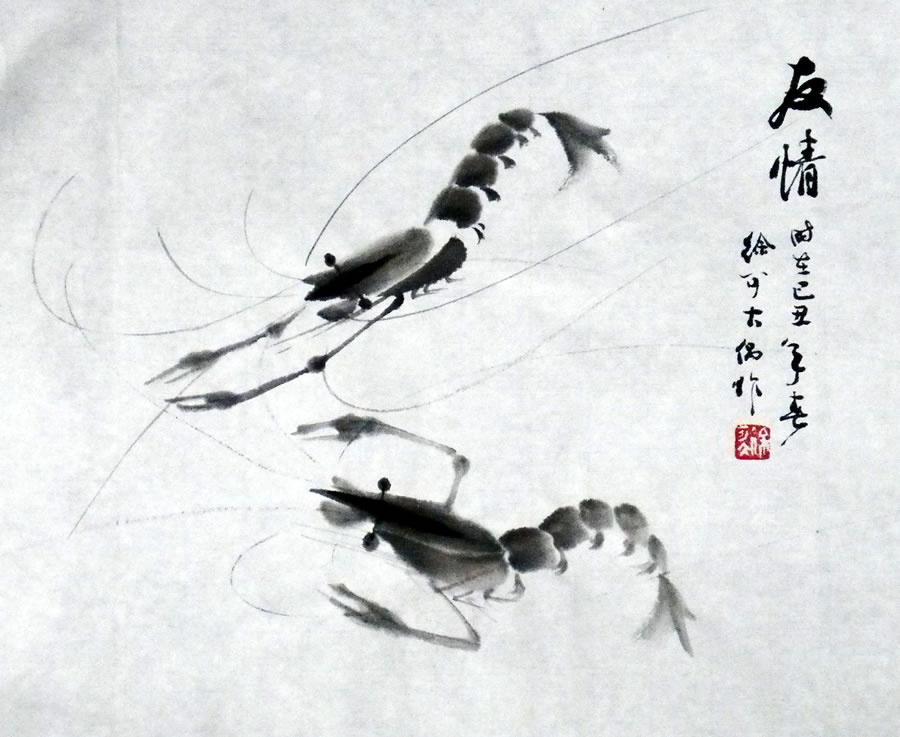 友情
时在己丑年春
徐可大偶作